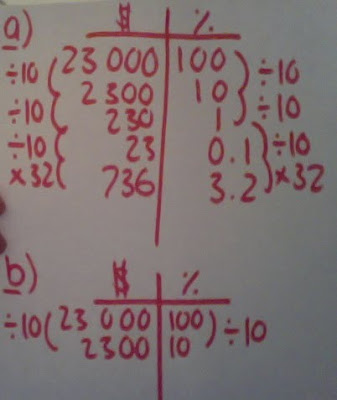 a) $ %
÷10 23 000 100 ÷10
÷10 2300 10 ÷10
230 1
÷10 23 0.1 ÷10
×32 736 3.2 ×32
b) $ %
÷10 23 000 100 ÷10
2300 10